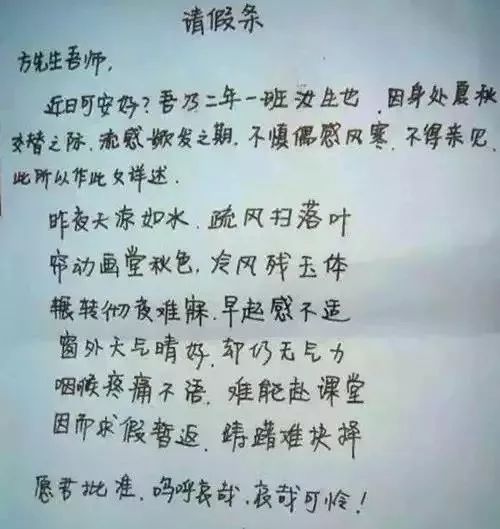 请假条
方先生吾师，
近日可安好？吾乃二年一班汝生也．因身处夏秋
交替之际．流感掀发之期．不慎偶感风寒．不得亲见．
此所以作此文详述．
昨夜天凉如水．疏风扫落叶
帘动画堂秋色，冷风残玉体
辗转彻夜难寐．早起感不适
窗外天气晴好．却仍无气力
咽喉疼痛不语．难能赴课堂
因而求假暂返．踌躇难抉择
愿君批准．呜呼哀哉．哀哉可怜！